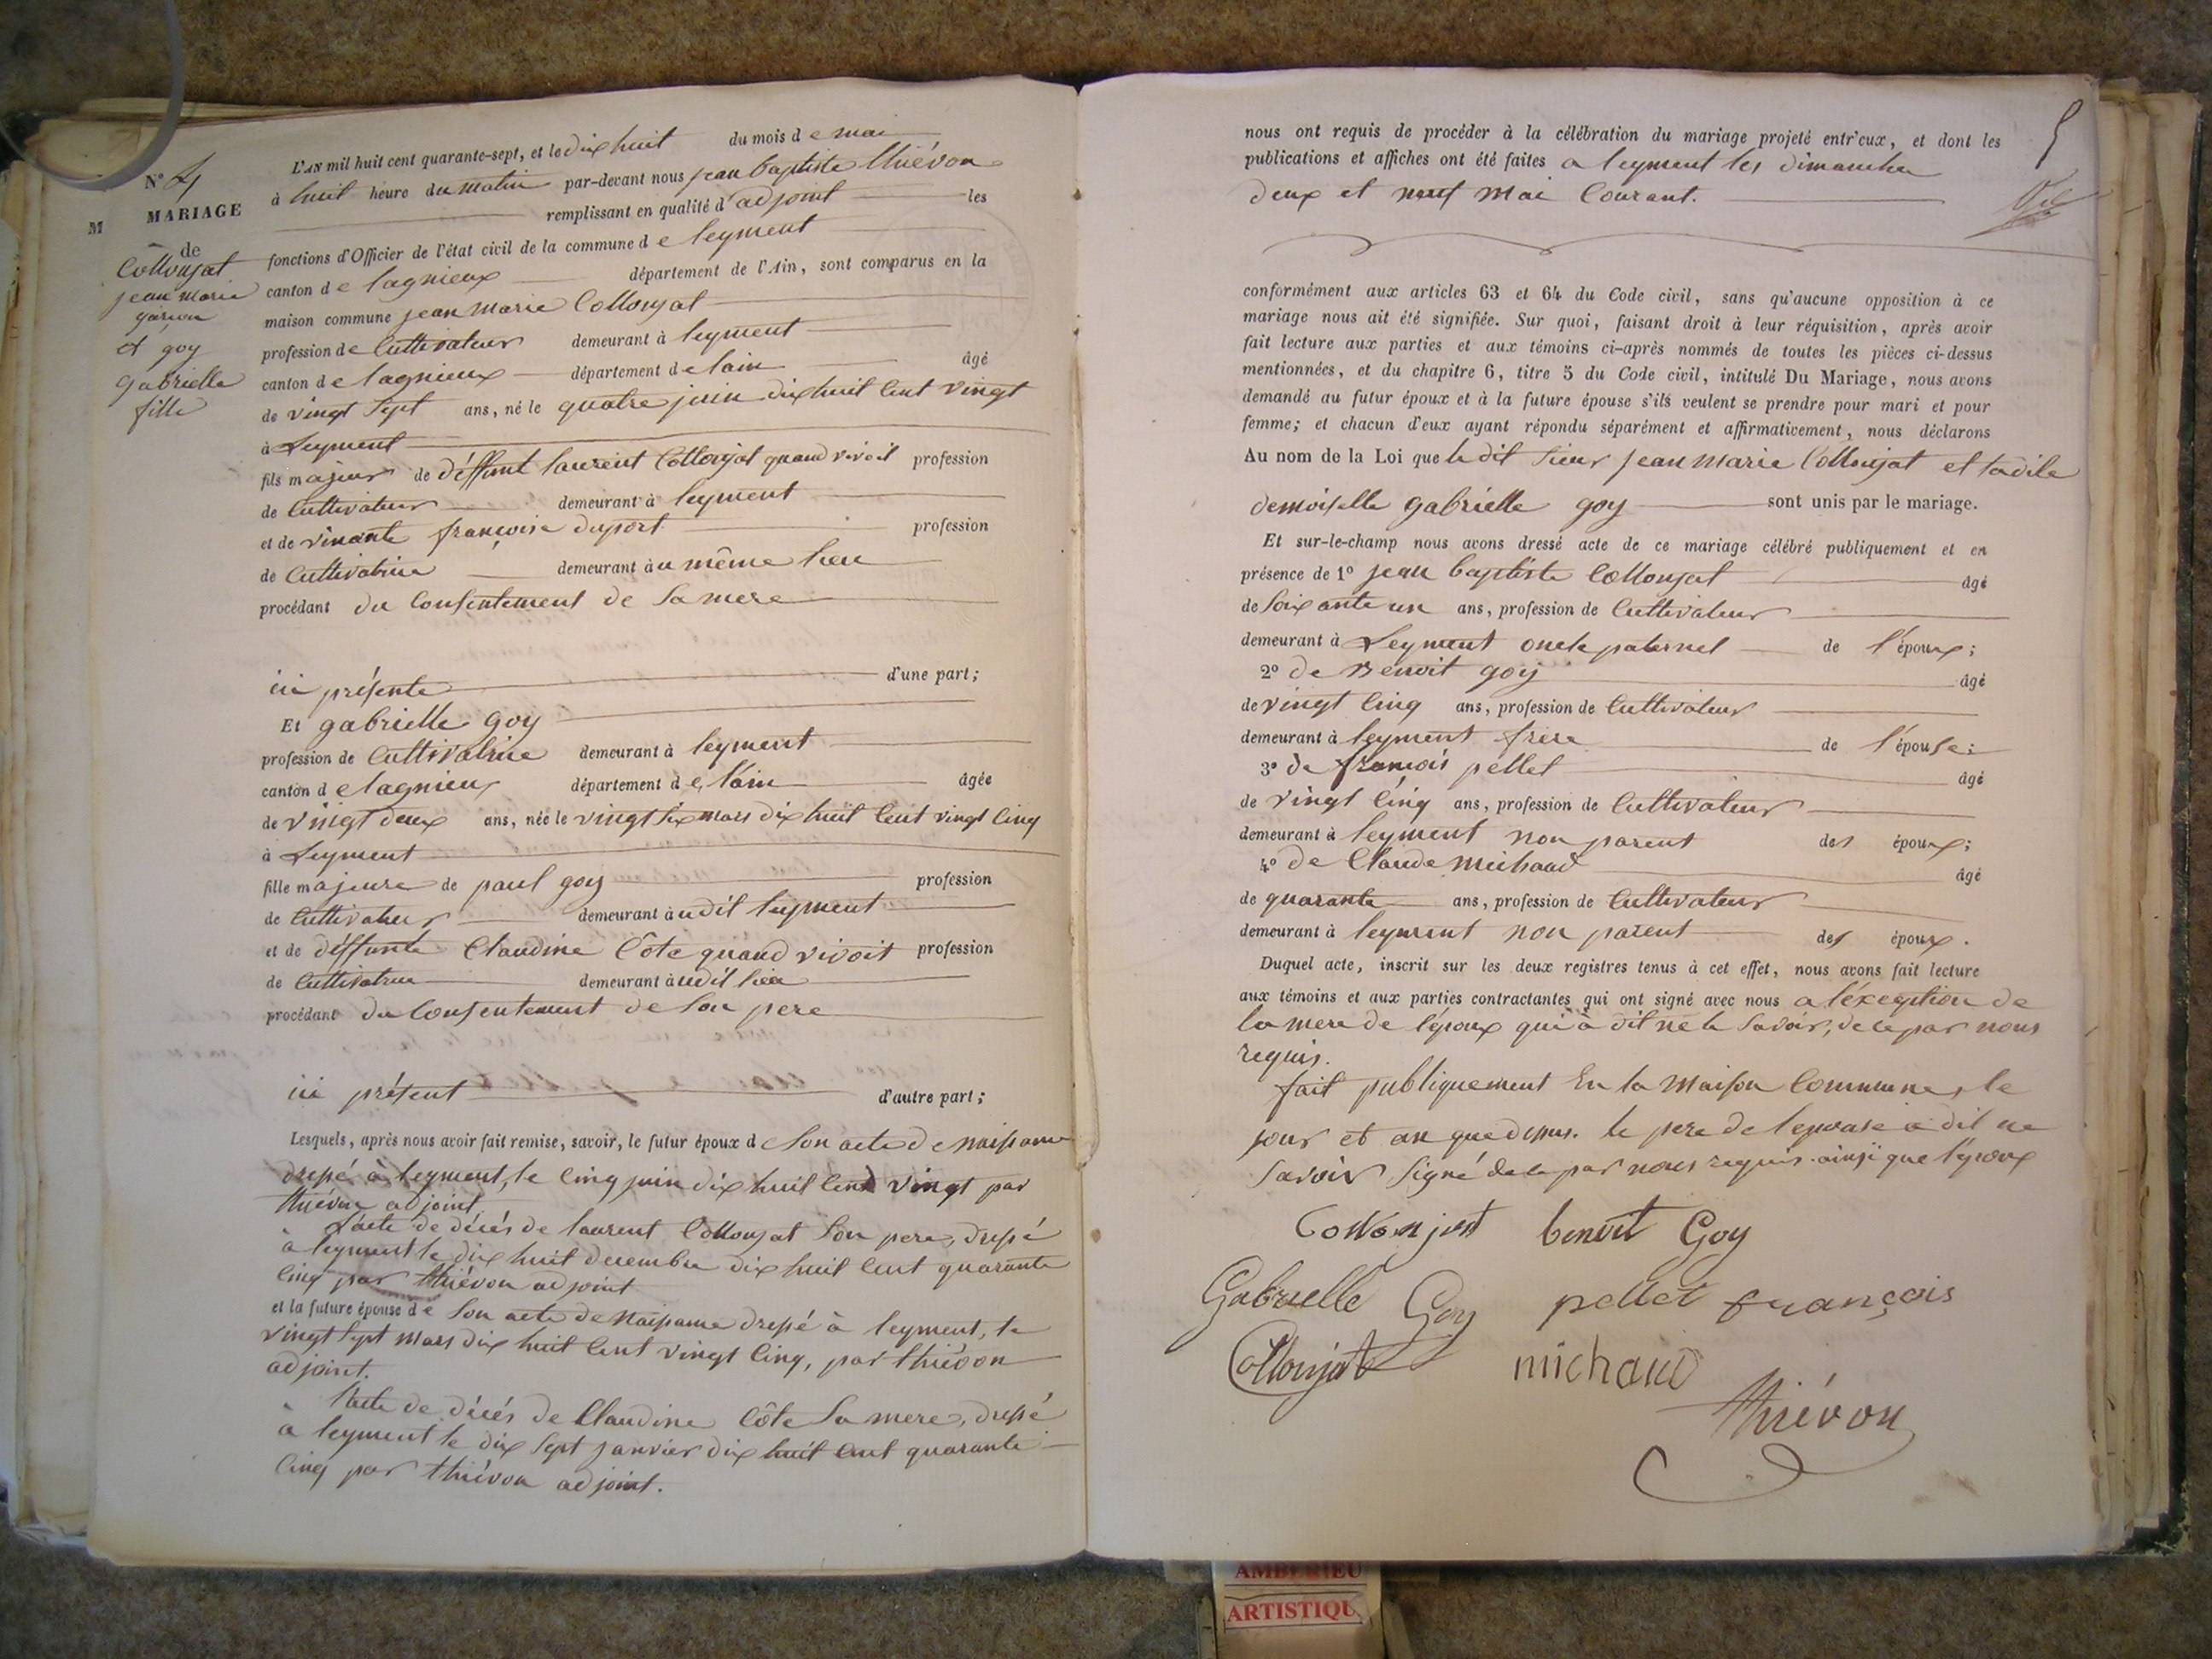 N° 4
M MARIAGE
de
Collonjat
jean marie
garcon
et goy
gabrielle
fille
L'AN mil huit cent quarante-sept, et le dix huit du mois de mai
à huit heure du matin par-devant nous jean baptiste thiévon
remplissant en qualité d'adjoint les
fonctions d'Officier de l'état civil de la commune de leyment
canton de lagnieux département de l'Ain, sont comparus en la
maison commune jean marie Collonjat
profession de Cultivateur demeurant à leyment
canton de lagnieux département de lain âgé
de vingt sept ans, né le quatre juin dix huit cent vingt
à Leyment
fils majeur de déffunt laurent Collonjat quand vivoit profession
de Cultivateur demeurant à leyment
et de vivante françoise duport profession
de Cultivatrice demeurant au même lieu
procédant du consentement de sa mere
ici présente d'une part;
Et gabrielle goy
profession de Cultivatrice demeurant à leyment
canton de lagnieux département de l'ain âgée
de vingt deux ans, née le vingt six mars dix huit cent vingt cinq
à Leyment
fille majeure de paul goy profession
de Cultivateur demeurant audit leyment
et de déffunte Claudine Côte quand vivoit profession
de Cultivatrice demeurant audit lieu
procédant du consentement de son pere
ici présent d'autre part;
Lesquels, après nous avoir fait remise, savoir, le futur époux de son acte de naissance
dressé à leyment, le cinq juin dix huit cent vingt par
thiévon adjoint
L'acte de décés de laurent Collonjat son pere, dressé
à leyment le dix huit decembre dix huit cent quarante
cinq par thiévon adjoint
et la future épouse de son acte de naissance dressé à leyment, le
vingt sept mars dix huit cent vingt cinq, par thiévon
adjoint.
l'acte de décés de Claudine Côte sa mere, dressé
à leyment le dix sept janvier dix huit cent quarante
cinq par thiévon adjoint.
5
nous ont requis de procéder à la célébration du mariage projeté entr'eux, et dont les
publications et affiches ont été faites a leyment les dimanche
deux et neuf mai courant.
conformément aux articles 63 et 64 du Code civil, sans qu'aucune opposition à ce
mariage nous ait été signifiée. Sur quoi, faisant droit à leur réquisition, après avoir
fait lecture aux parties et aux témoins ci-après nommés de toutes les pièces ci-dessus
mentionnées, et du chapitre 6, titre 5 du Code civil, intitulé Du Mariage, nous avons
demandé au futur époux et à la future épouse s'ils veulent se prendre pour mari et pour
femme; et chacun d'eux ayant répondu séparément et affirmativement, nous déclarons
Au nom de la Loi que le dit sieur jean marie Collonjat et ladite
demoiselle gabrielle goy sont unis par le mariage.
Et sur-le-champ nous avons dressé acte de ce mariage célébré publiquement et en
présence de 1° jean baptiste Collonjat âgé
de soixante un ans, profession de Cultivateur
demeurant à Leyment oncle paternel de l'époux;
2° de Benoit goy âgé
de vingt cinq ans, profession de Cultivateur
demeurant à leyment frère de l'épouse;
3° de françois pellet âgé
de vingt cinq ans, profession de Cultivateur
demeurant à leyment non parent des époux;
4° de Claude michaud âgé
de quarante ans, profession de Cultivateur
demeurant à leyment non parent des époux.
Duquel acte, inscrit sur les deux registres tenus à cet effet, nous avons fait lecture
aux témoins et aux parties contractantes qui ont signé avec nous a l'éxception de
la mere de l'époux qui à dit ne le savoir, de ce par nous
requis.
fait publiquement En la maison commune, le
jour et an que dessus. le pere de lepouse a dit ne
savoir signé de ce par nous requis. ainsi que l'époux
Collonjat benoit Goy
Gabrielle Goy pellet françois
Collonjat michaud
thiévon
AMBERIEU
ARTISTIQU